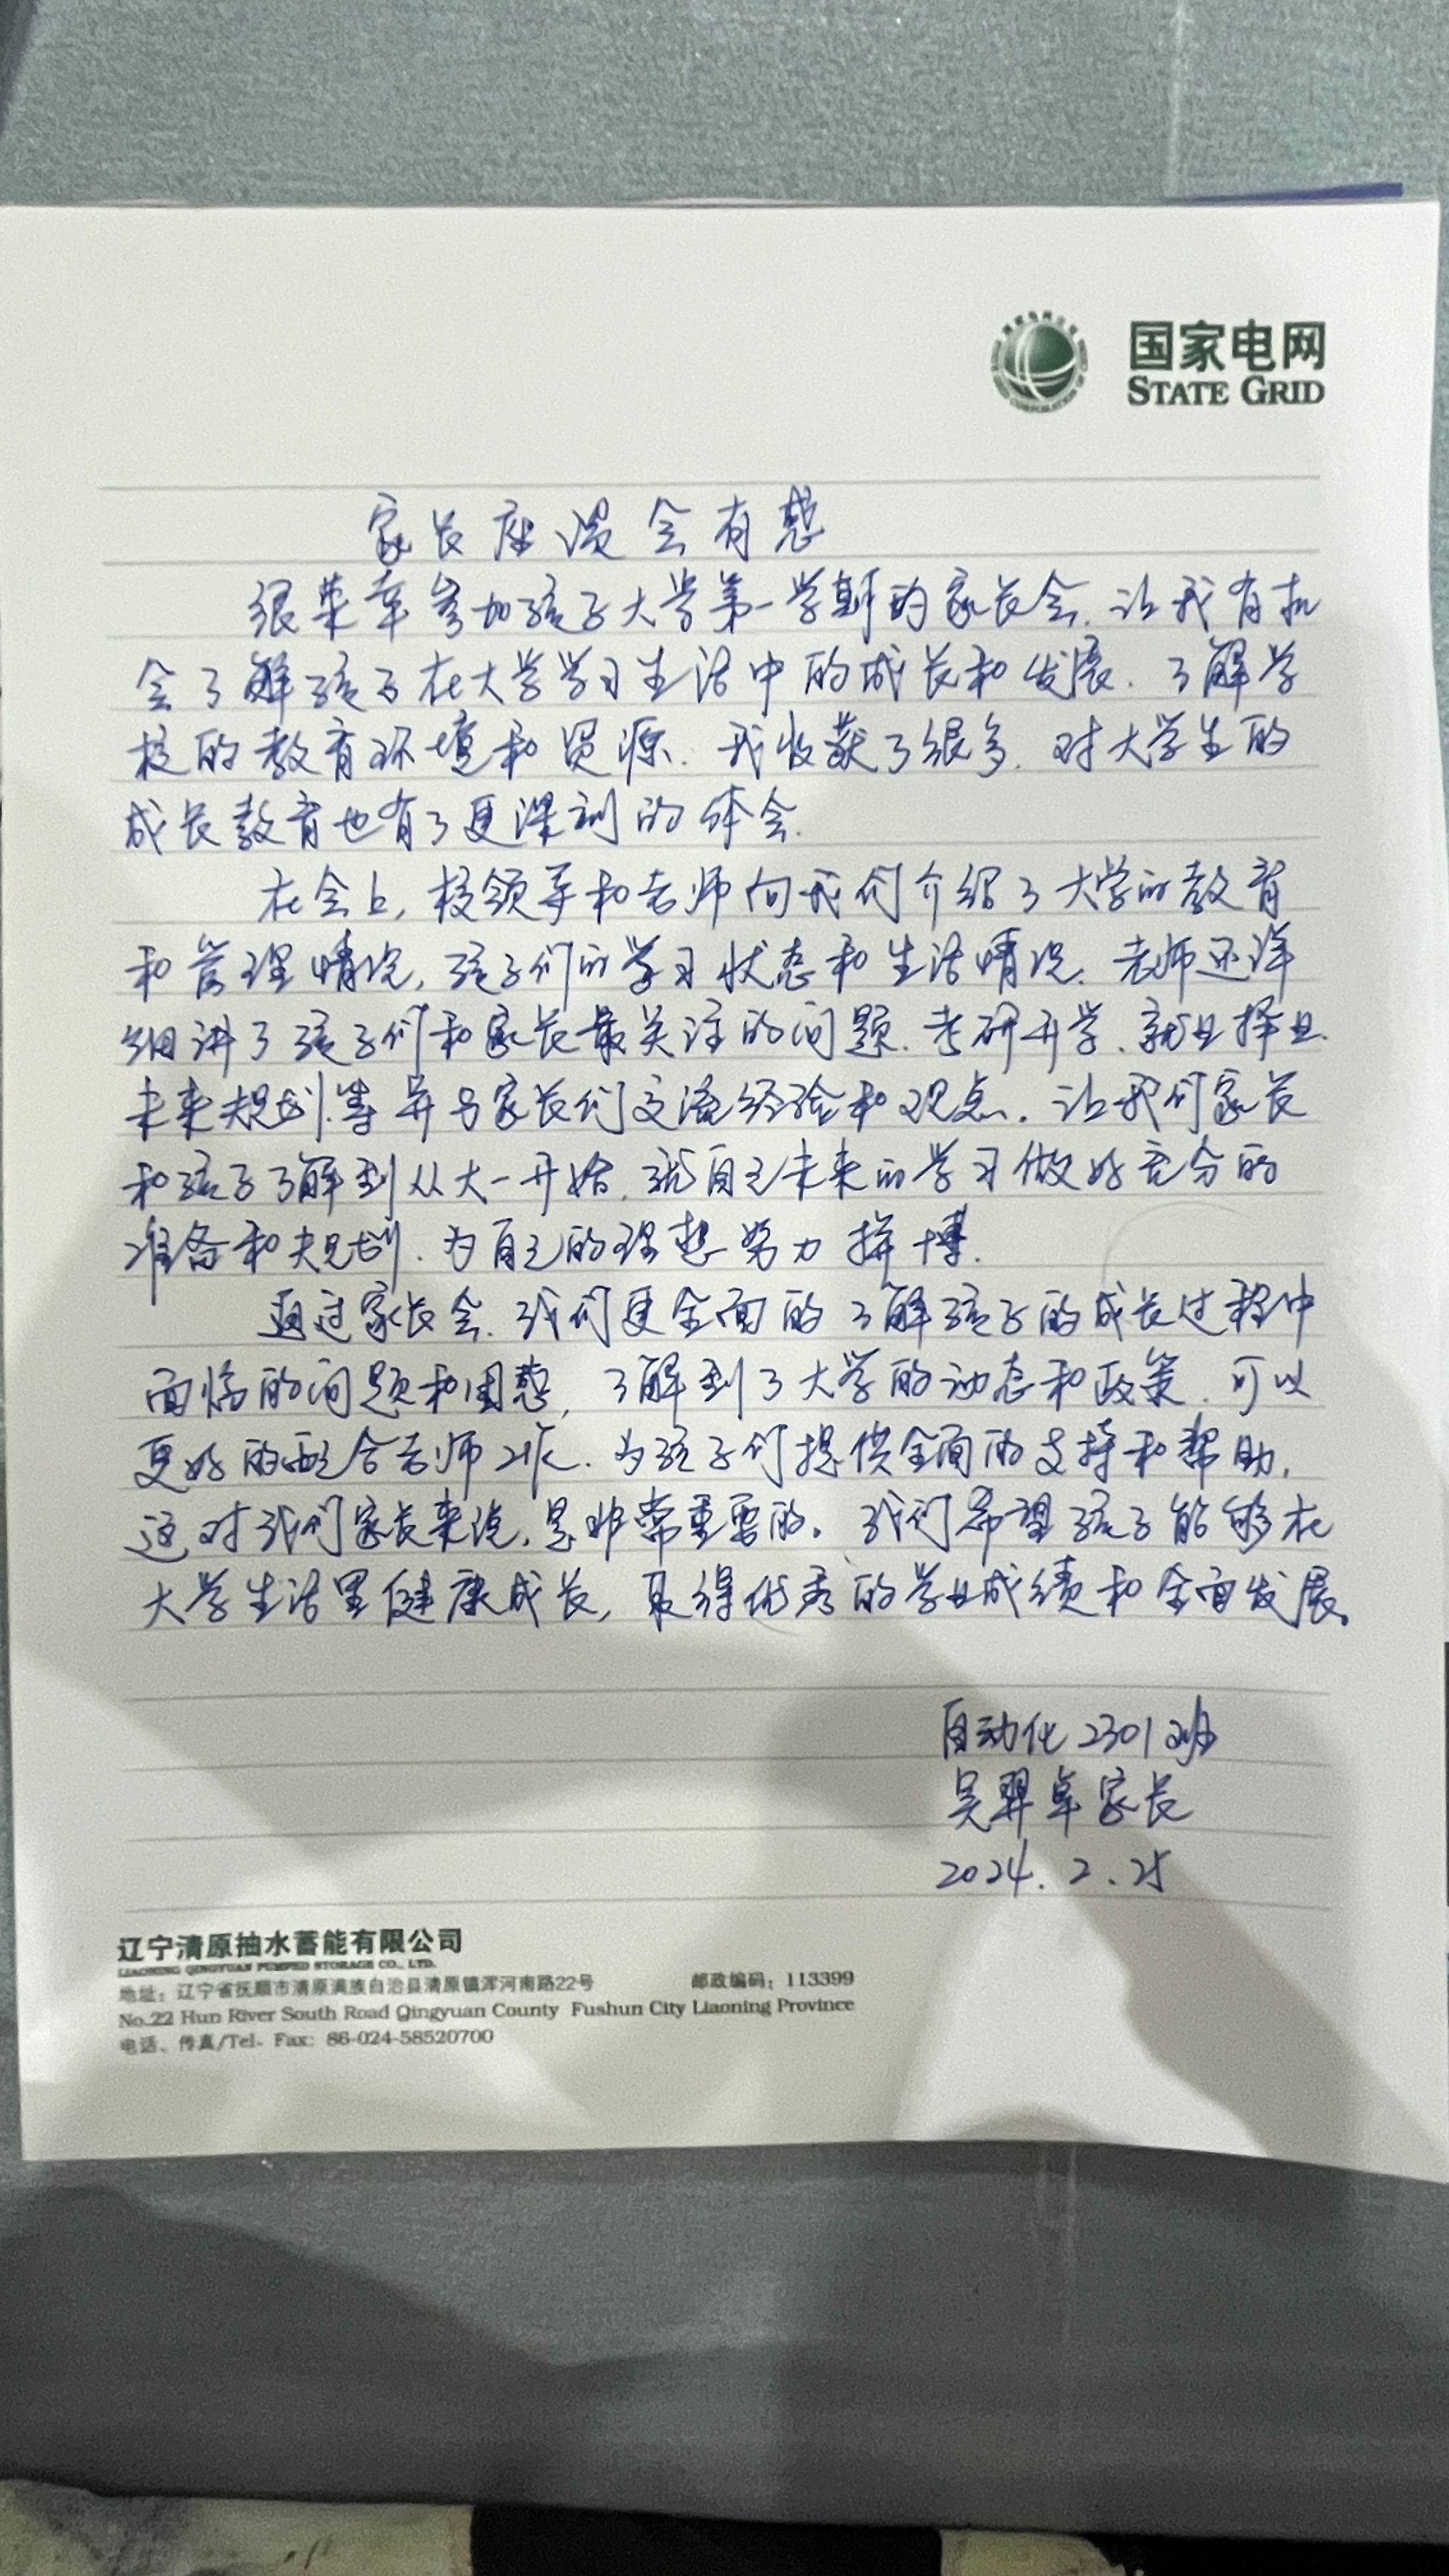 国家电网
STATE GRID
家长座谈会有感
很荣幸参加孩子大学第一学期的家长会.让我有机
会了解孩子在大学学习生活中的成长和发展.了解学
校的教育环境和资源.我收获了很多.对大学生的
成长教育也有了更深刻的体会.
在会上,校领导和老师向我们介绍了大学的教育
和管理情况,孩子们的学习状态和生活情况.老师还详
细讲了孩子们和家长最关注的问题.考研升学.就业择业.
未来规划.等并与家长们交流经验和观点.让我们家长
和孩子了解到从大一开始.就自己未来的学习做好充分的
准备和规划.为自己的理想努力拼搏.
通过家长会.我们更全面的了解孩子的成长过程中
面临的问题和困惑,了解到了大学的动态和政策.可以
更好的配合老师工作.为孩子们提供全面的支持和帮助.
这对我们家长来说,是非常重要的。我们希望孩子能够在
大学生活里健康成长,取得优秀的学业成绩和全面发展。
自动化2301班
吴羿卓家长
2024.2.25
辽宁清原抽水蓄能有限公司
LIAONING QINGYUAN PUMPED STORAGE CO., LTD.
地址:辽宁省抚顺市清原满族自治县清原镇浑河南路22号 邮政编码:113399
No.22 Hun River South Road Qingyuan County Fushun City Liaoning Province
电话、传真/Tel、Fax: 86-024-58520700